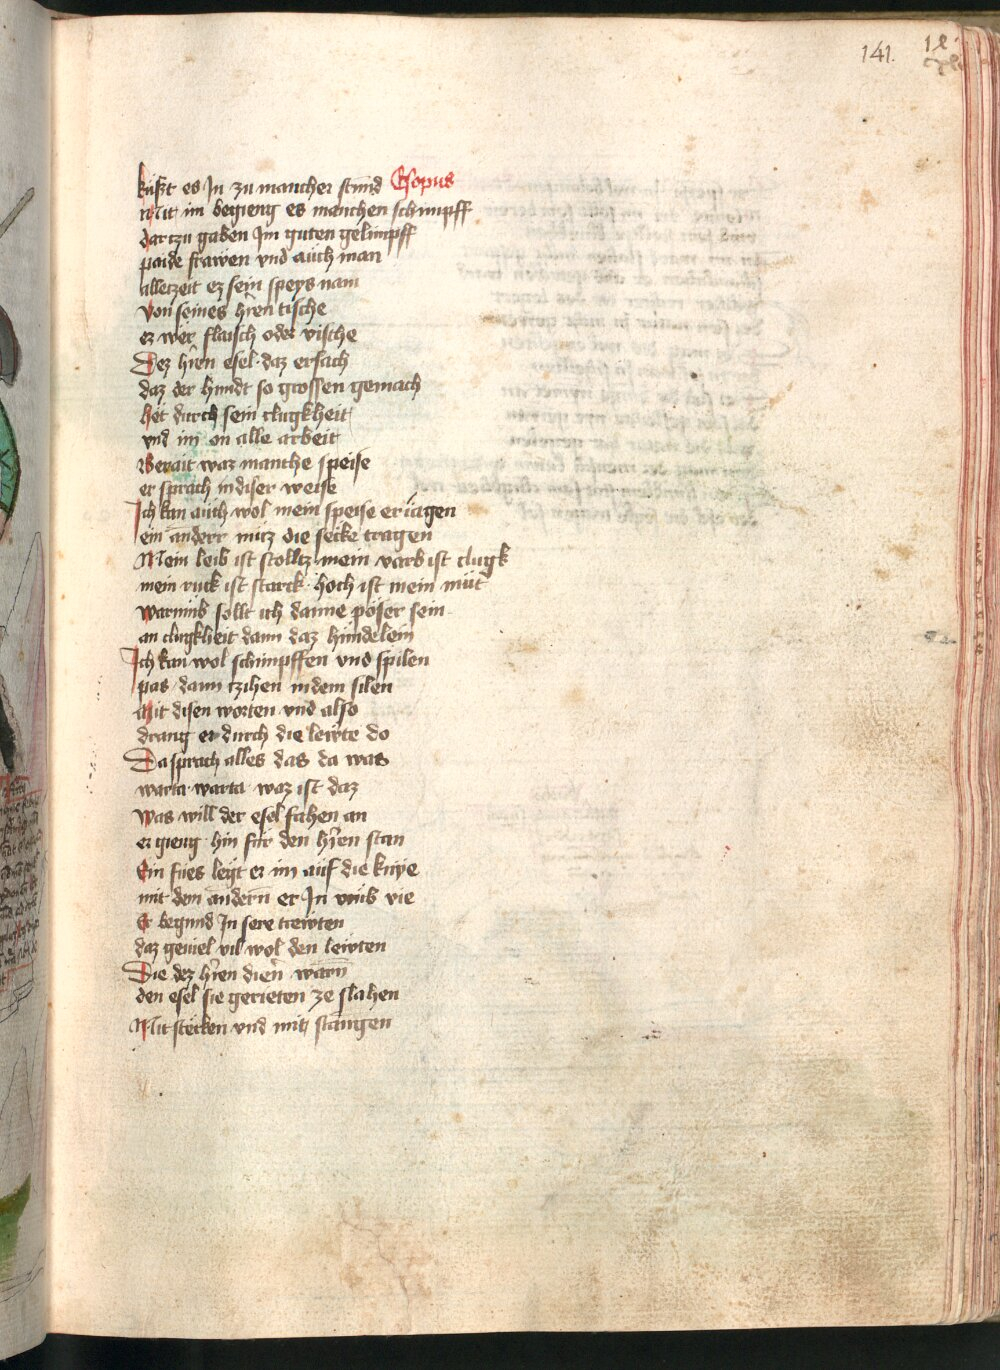 141.
küszt es In zu mancher stund Esopus
Mit im begieng es manchen schimpff
dartzu gaben Im guten gelimpff
paide frawen vnd auch man
alletzeit ez sein speys nam
Von seines hren tische
ez wer flaisch oder vische
Dez hren esel daz ersach
daz der hundt so grossen gemach
Het durch sein clugkheit
vnd im on alle arbeit
Berait waz manche speise
er sprach in diser weise
Ich kan auch wol mein speise eriagen
ein anderr müz die secke tragen
Mein leib ist stolltz mein varb ist clugk
mein ruck ist starck hoch ist mein müt
Warumb sollt ich danne pöser sein
an clugkheit dann daz hundelein
Ich kan wol schimpffen vnd spilen
pas dann tzihen in dem silen
Mit disen worten vnd also
drang er durch die lewte do
Da sprach alles das da was
warta warta waz ist daz
Was will der esel fahen an
er gieng hin für den hren stan
Ein fües legt er im auf die knye
mit dem andern er In vmb vie
Er begund In sere trewten
daz geuiel vil wol den lewten
Die dez hren diener warn
den esel sie gerieten ze slahen
Mit stecken vnd mit stangen